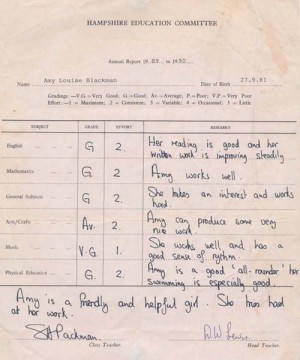 HAMPSHIRE EDUCATION COMMITTEE
Annual Report 19 89 to 1990
Name Amy Louise Blackman Date of Birth 27.9.81
Gradings:—V.G.=Very Good; G.=Good; Av.=Average; P.=Poor; V.P.=Very Poor
Effort:—1 = Maximum; 2 = Consistent; 3 = Variable; 4 = Occasional; 5 = Little
SUBJECT GRADE EFFORT REMARKS
English G 2. Her reading is good and her
written work is improving steadily
Mathematics G 2 Amy works well.
General Subjects G 2. She takes an interest and works
hard.
Arts/Crafts Av. 2. Amy can produce some very
nice work.
Music V.G 1. She works well and has a
good sense of rythm.
Physical Education G. 2. Amy is a good 'all-rounder' her
swimming is especially good.
Amy is a friendly and helpful girl. She tries hard
at her work.
Class Teacher. Head Teacher.